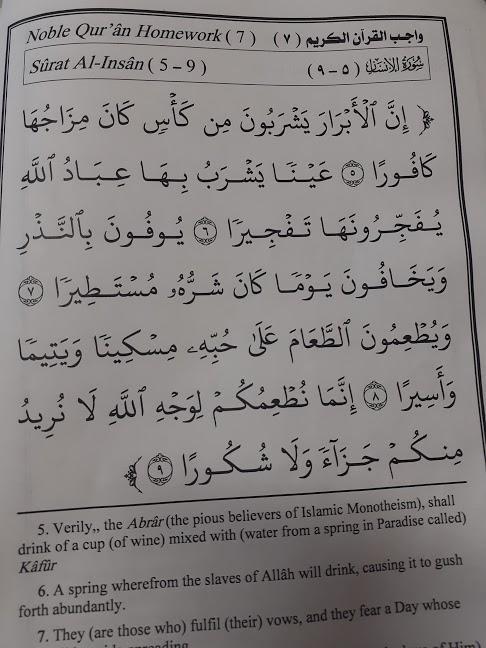 Noble Qur'ân Homework ( 7 ) واجب القرآن الكريم ( ٧ )
Sûrat Al-Insân ( 5 – 9 ) سُورَةُ الإِنْسَان ( ٥ - ٩ )
﴿ إِنَّ ٱلْأَبْرَارَ يَشْرَبُونَ مِن كَأْسٍ كَانَ مِزَاجُهَا
كَافُورًا ٥ عَيْنًا يَشْرَبُ بِهَا عِبَادُ ٱللَّهِ
يُفَجِّرُونَهَا تَفْجِيرًا ٦ يُوفُونَ بِٱلنَّذْرِ
وَيَخَافُونَ يَوْمًا كَانَ شَرُّهُۥ مُسْتَطِيرًا ٧
وَيُطْعِمُونَ ٱلطَّعَامَ عَلَىٰ حُبِّهِۦ مِسْكِينًا وَيَتِيمًا
وَأَسِيرًا ٨ إِنَّمَا نُطْعِمُكُمْ لِوَجْهِ ٱللَّهِ لَا نُرِيدُ
مِنكُمْ جَزَآءً وَلَا شُكُورًا ٩ ﴾
5. Verily,, the Abrâr (the pious believers of Islamic Monotheism), shall
drink of a cup (of wine) mixed with (water from a spring in Paradise called)
Kâfûr
6. A spring wherefrom the slaves of Allâh will drink, causing it to gush
forth abundantly.
7. They (are those who) fulfil (their) vows, and they fear a Day whose
spreading